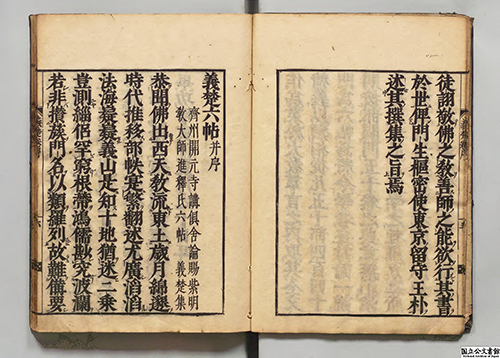 徒詡敬佛之教善師之能欲行其書
於世俾門生樞密使東京留守王朴
述其撰集之旨焉
義楚六帖并序
齊州開元寺講俱舍論賜紫明
教大師進釋氏六帖 義楚集
恭聞佛出西天教流東土歳月綿邈
時代推移部帙是繁翻述尤廣滔滔
法海巍巍義山足知十地猶迷二乗
豈測緇侶罕窮根蔕鴻儒尠究波瀾
若非撮族門名以類羅列故難備要
国立公文書館